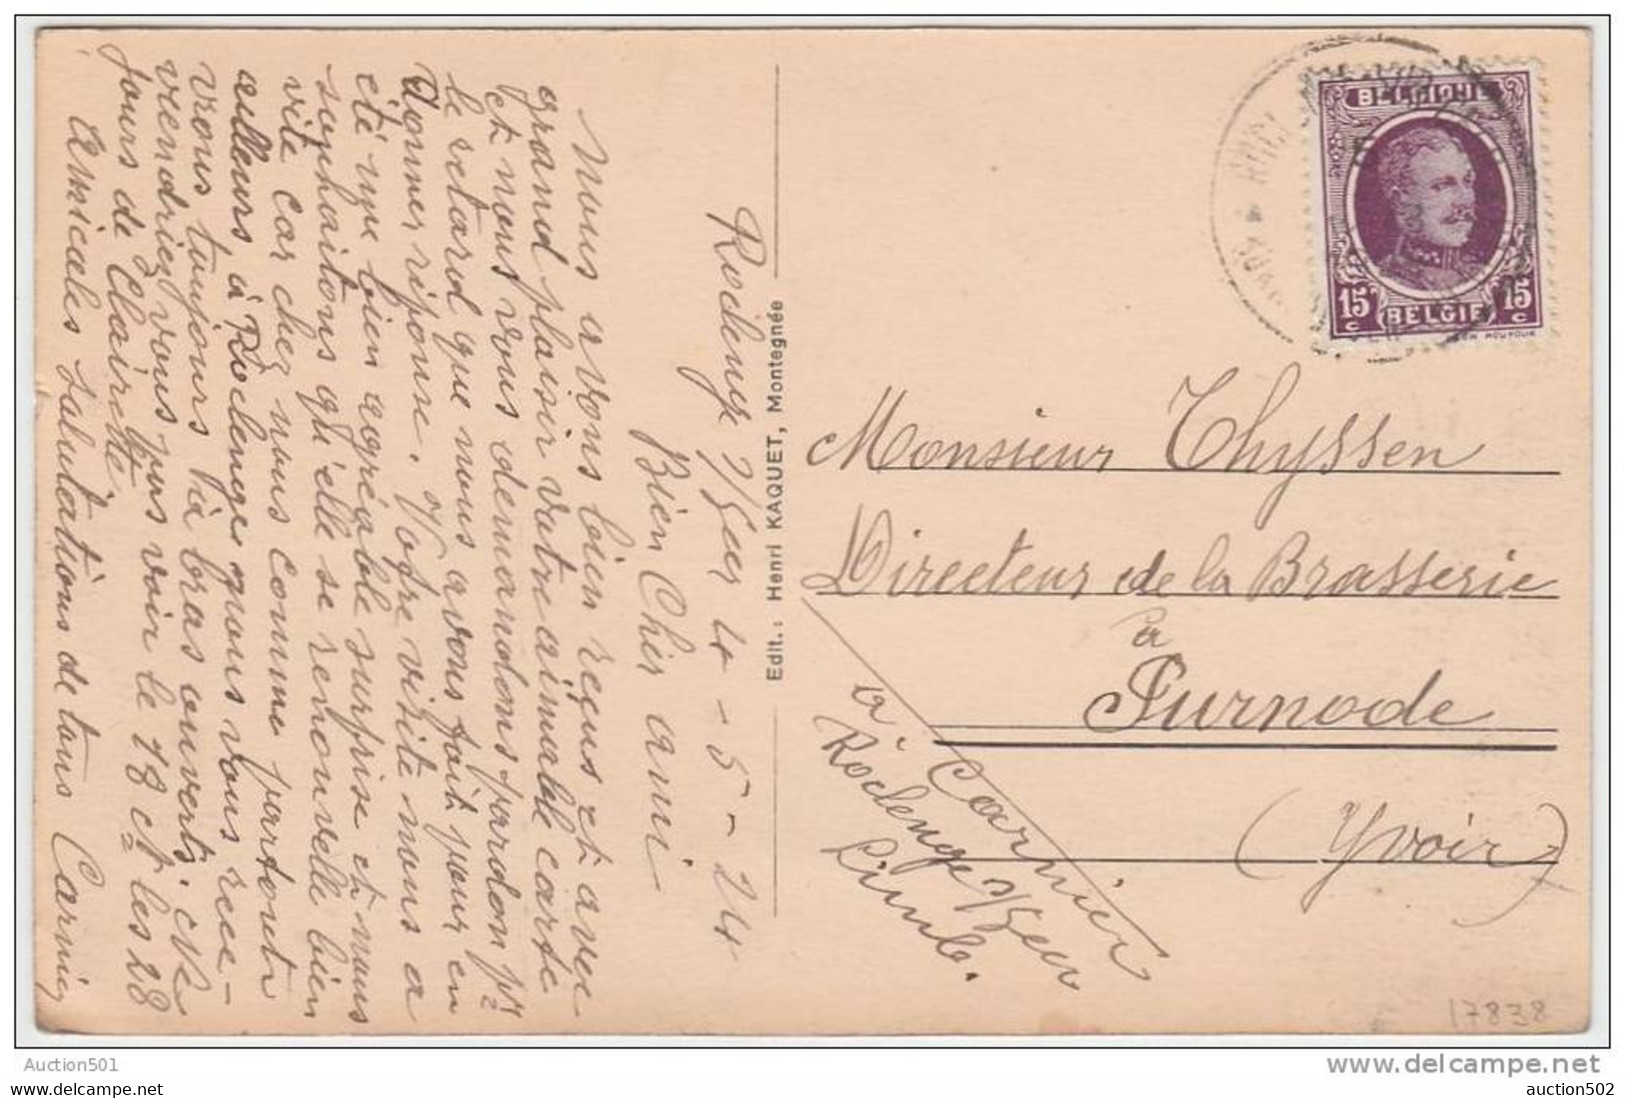 Roclenge s/Geer 4 - 5 - 24
Bien Cher ami
Nous avons bien reçus et avec
grand plaisir votre aimable carte
et nous vous demandons pardon pr
le retard que nous avons fait pour en
donner réponse. Votre visite nous a
été une bien agréable surprise et nous
souhaitons qu'elle se renouvelle bien
vite car chez nous comme partout
ailleurs à Roclenge nous vous rece-
vrons toujours à bras ouverts.
viendriez vous voir le 18 et les 28
jours de Clairette.
Amicales Salutations de tous Carnier
Edit.: Henri KAQUET, Montegnée
BELGIQUE
15 c 15 c
BELGIE
Monsieur Thyssen
Directeur de la Brasserie
à
Purnode
(Yvoir)
Carnier
à Roclenge s/Geer
Limb.
17838
Auction501
www.delcampe.net
auction502